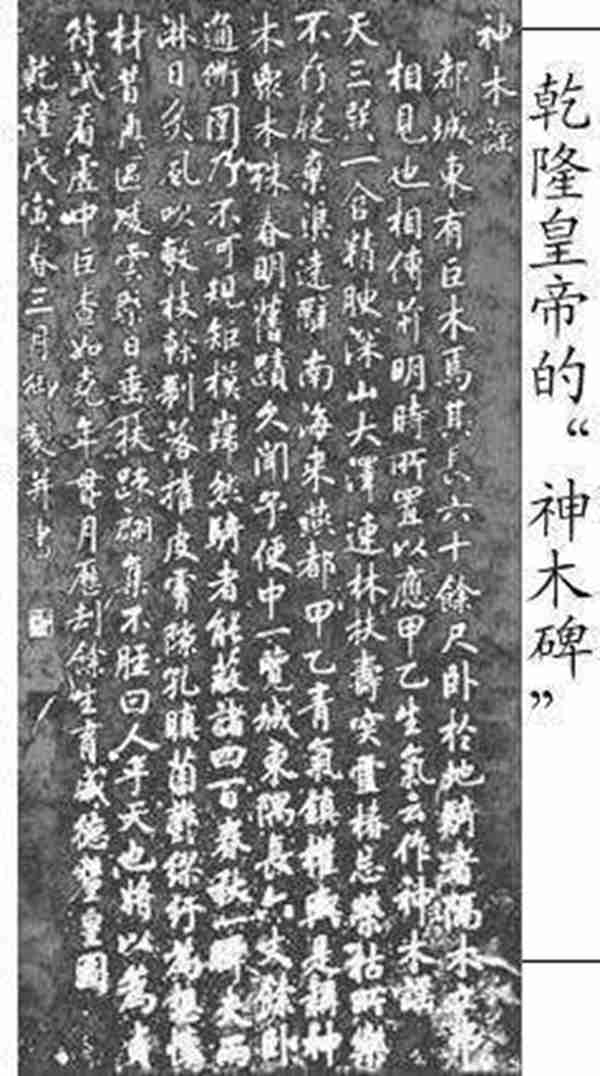 乾隆皇帝的“神木碑”
神木謠
都城東有巨木焉其長六十餘尺卧於地騎者隔木立弗
相見也相傳前明時所置以應甲乙生氣云作神木謠
天三巽一含精腴深山大澤連林扶壽突靈椿忘榮枯所樂
不存棄渠遠辭南海來燕都甲乙青氣鎮權輿是稱神
木衆木殊春明舊蹟久聞予便中一覽城東隅長六丈餘卧
通衢圍乃不可規矩模巋然騎者能蔽諸四百春秋一瞬夫雨
淋日炙風吹敷枝幹剝落摧皮膚隙孔菌行為
材昔真凌雲翳日垂扶疎翩集不脛曰人乎天也將以為貞
符試看虛中巨查如堯年貫月應刳餘生育盛德鞏皇圖
乾隆戊寅春三月御製并書